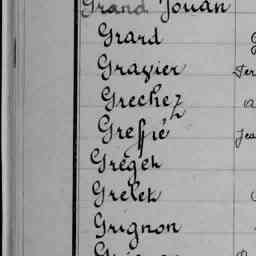 Grand Jouan
Grard
Grazier
Grechez
Greffié
Gregeh
Grelek
Grignon